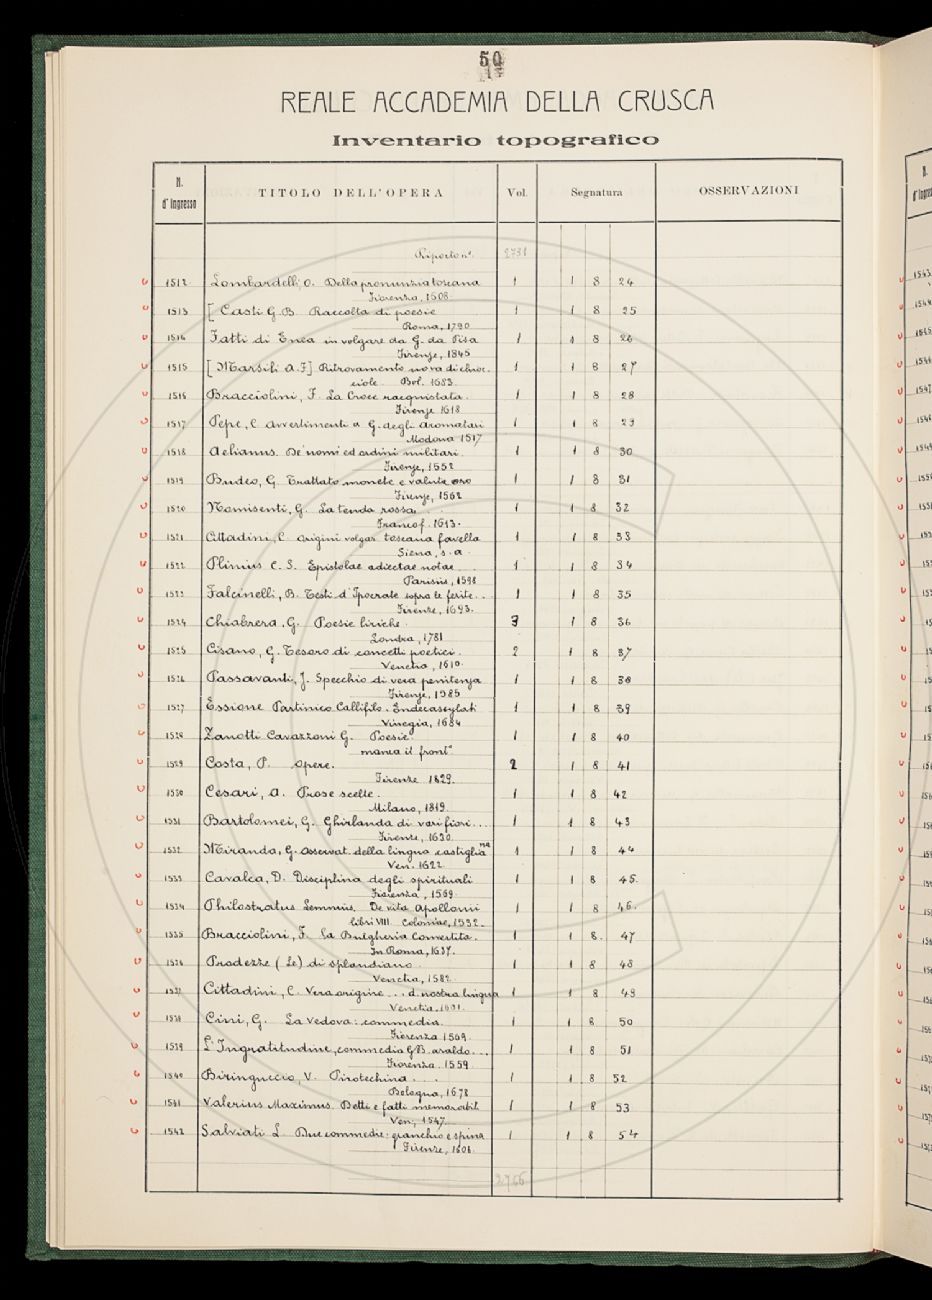 50
REALE ACCADEMIA DELLA CRUSCA
Inventario topografico
N. d'Ingresso TITOLO DELL'OPERA Vol. Segnatura OSSERVAZIONI
Riporto n° 2731
1512 Lombardelli, O. Della pronunzia toscana 1 1 8 24
Fiorenza, 1608.
1513 [Casti G. B. Raccolta di poesie 1 1 8 25
Roma, 1790
1514 Fatti di Enea in volgare da G. da Pisa 1 1 8 26
Firenze, 1845
1515 [Marsili A. F.] Ritrovamento nova di chioc. 1 1 8 27
ciole. Bol. 1683.
1516 Bracciolini, F. La Croce racquistata. 1 1 8 28
Firenze 1618
1517 Pepe, C. Avvertimenti a G. degli Aromatari 1 1 8 29
Modona 1517
1518 Aelianus. De' nomi ed ordini militari. 1 1 8 30
Firenze, 1552
1519 Budeo, G. Trattato monete e valuta oro 1 1 8 31
Firenze, 1562
1520 Nomisenti, G. La tenda rossa. 1 1 8 32
Francof. 1613.
1521 Cittadini, C. Origini volgar toscana favella 1 1 8 33
Siena, s. a.
1522 Plinius C. S. Epistolae adiectae notae 1 1 8 34
Parisiis, 1598
1523 Falcinelli, B. Testi d'Ipocrate sopra le ferite.. 1 1 8 35
Firenze, 1693.
1524 Chiabrera, G. Poesie liriche. 3 1 8 36
Londra, 1781
1525 Cisano, G. Tesoro di concetti poetici. 2 1 8 37
Venetia, 1610.
1526 Passavanti, J. Specchio di vera penitenza 1 1 8 38
Firenze, 1585
1527 Essione Partinico Callifilo. Endecasyllabi 1 1 8 39
Vinegia, 1684
1528 Zanotti Cavazzoni G. Poesie. 1 1 8 40
manca il front°
1529 Costa, P. Opere. 2 1 8 41
Firenze 1829.
1530 Cesari, A. Prose scelte. 1 1 8 42
Milano, 1819.
1531 Bartolomei, G. Ghirlanda di vari fiori.... 1 1 8 43
Firenze, 1630.
1532 Miranda, G. Osservat. della lingua castiglia^na 1 1 8 44
Ven. 1622.
1533 Cavalca, D. Disciplina degli spirituali 1 1 8 45.
Fiorenza, 1569.
1534 Philostratus Lemnius. De vita Apollonii 1 1 8 46.
libri VIII. Coloniae, 1532.
1535 Bracciolini, F. La Bulgheria convertita. 1 1 8. 47
In Roma, 1637.
1536 Prodezze (Le) di Splandiano. 1 1 8 48
Venetia, 1582.
1537 Cittadini, C. Vera origine ... d. nostra lingua 1 1 8 49
Venetia, 1601.
1538 Cini, G. La Vedova: commedia. 1 1 8 50
Fiorenza 1569.
1539 L'Ingratitudine, commedia G. B. Araldo... 1 1 8 51
Fiorenza. 1559.
1540 Biringuccio, V. Pirotechina.... 1 1 8 52
Bologna, 1678
1541 Valerius Maximus. Detti e fatti memorabil. 1 1 8 53
Ven., 1547.
1542 Salviati L. Due commedie: granchio e spina 1 1 8 54
Firenze, 1606.
2766